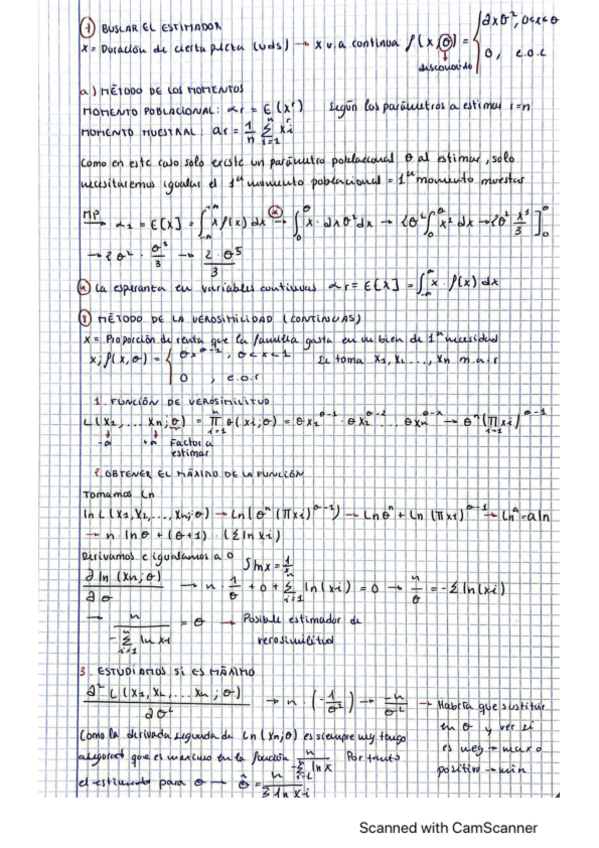 ① BUSCAR EL ESTIMADOR
x = Duración de cierta pieza (uds) → x v.a continua f(x,θ) = { 2xθ², 0≤x≤θ
0, e.o.c
desconocido
a) MÉTODO DE LOS MOMENTOS
MOMENTO POBLACIONAL: αr = E(xʳ) Según los parámetros a estimar r=n
MOMENTO MUESTRAL: ar = 1/n Σ xiʳ
Como en este caso solo existe un parámetro poblacional θ al estimar, solo
necesitaremos igualar el 1er momento poblacional = 1er momento muestral
MP → α1 = E[x] = ∫ x f(x) dx → ∫ x · 2xθ² dx → 2θ² ∫ x² dx → 2θ² x³/3 ]
→ 2θ² · θ³/3 → 2·θ⁵/3
La esperanza en variables continuas αr = E[x] = ∫ x · f(x) dx
MÉTODO DE LA VEROSIMILIDAD (CONTINUAS)
x = Proporción de renta que la familia gasta en un bien de 1ª necesidad
x; f(x,θ) = { θx^θ-1, 0<x<1 Se toma x1, x2 ..., xn m.a.s
0, e.o.c
1. FUNCIÓN DE VEROSIMILITUD
L(x1, ... xn; θ) = π θ(xi;θ) = θx1^θ-1 θx2^θ-2 ... θxn^θ-x → θⁿ (π xi)^θ-1
Factor a
estimar
2. OBTENER EL MÁXIMO DE LA FUNCIÓN
Tomamos Ln
ln L(x1,x2,...,xn;θ) → Ln(θⁿ (πxi)^θ-1) → Lnθⁿ + Ln (πxi)^θ-1 → Lnᵃ = a ln
→ n lnθ + (θ+1) · (Σ ln xi)
Derivamos e igualamos a 0
∂ ln (xn;θ) / ∂θ → n · 1/θ + 0 + Σ ln(xi) = 0 → n/θ = -Σ ln(xi)
→ n / -Σ ln xi = θ → Posible estimador de
verosimilitud
3. ESTUDIAMOS SI ES MÁXIMO
∂² L(x1, x2, ... xn; θ) / ∂θ² → n · (-1/θ²) → -n/θ² → Habría que sustituir
en θ y ver si
es neg → max o
positivo → min
Como la derivada segunda de Ln(xn;θ) es siempre neg tengo
que es máximo en la función n / -Σ ln x Por tanto
el estimando para θ → θ̂ = n / Σ ln xi
Scanned with CamScanner